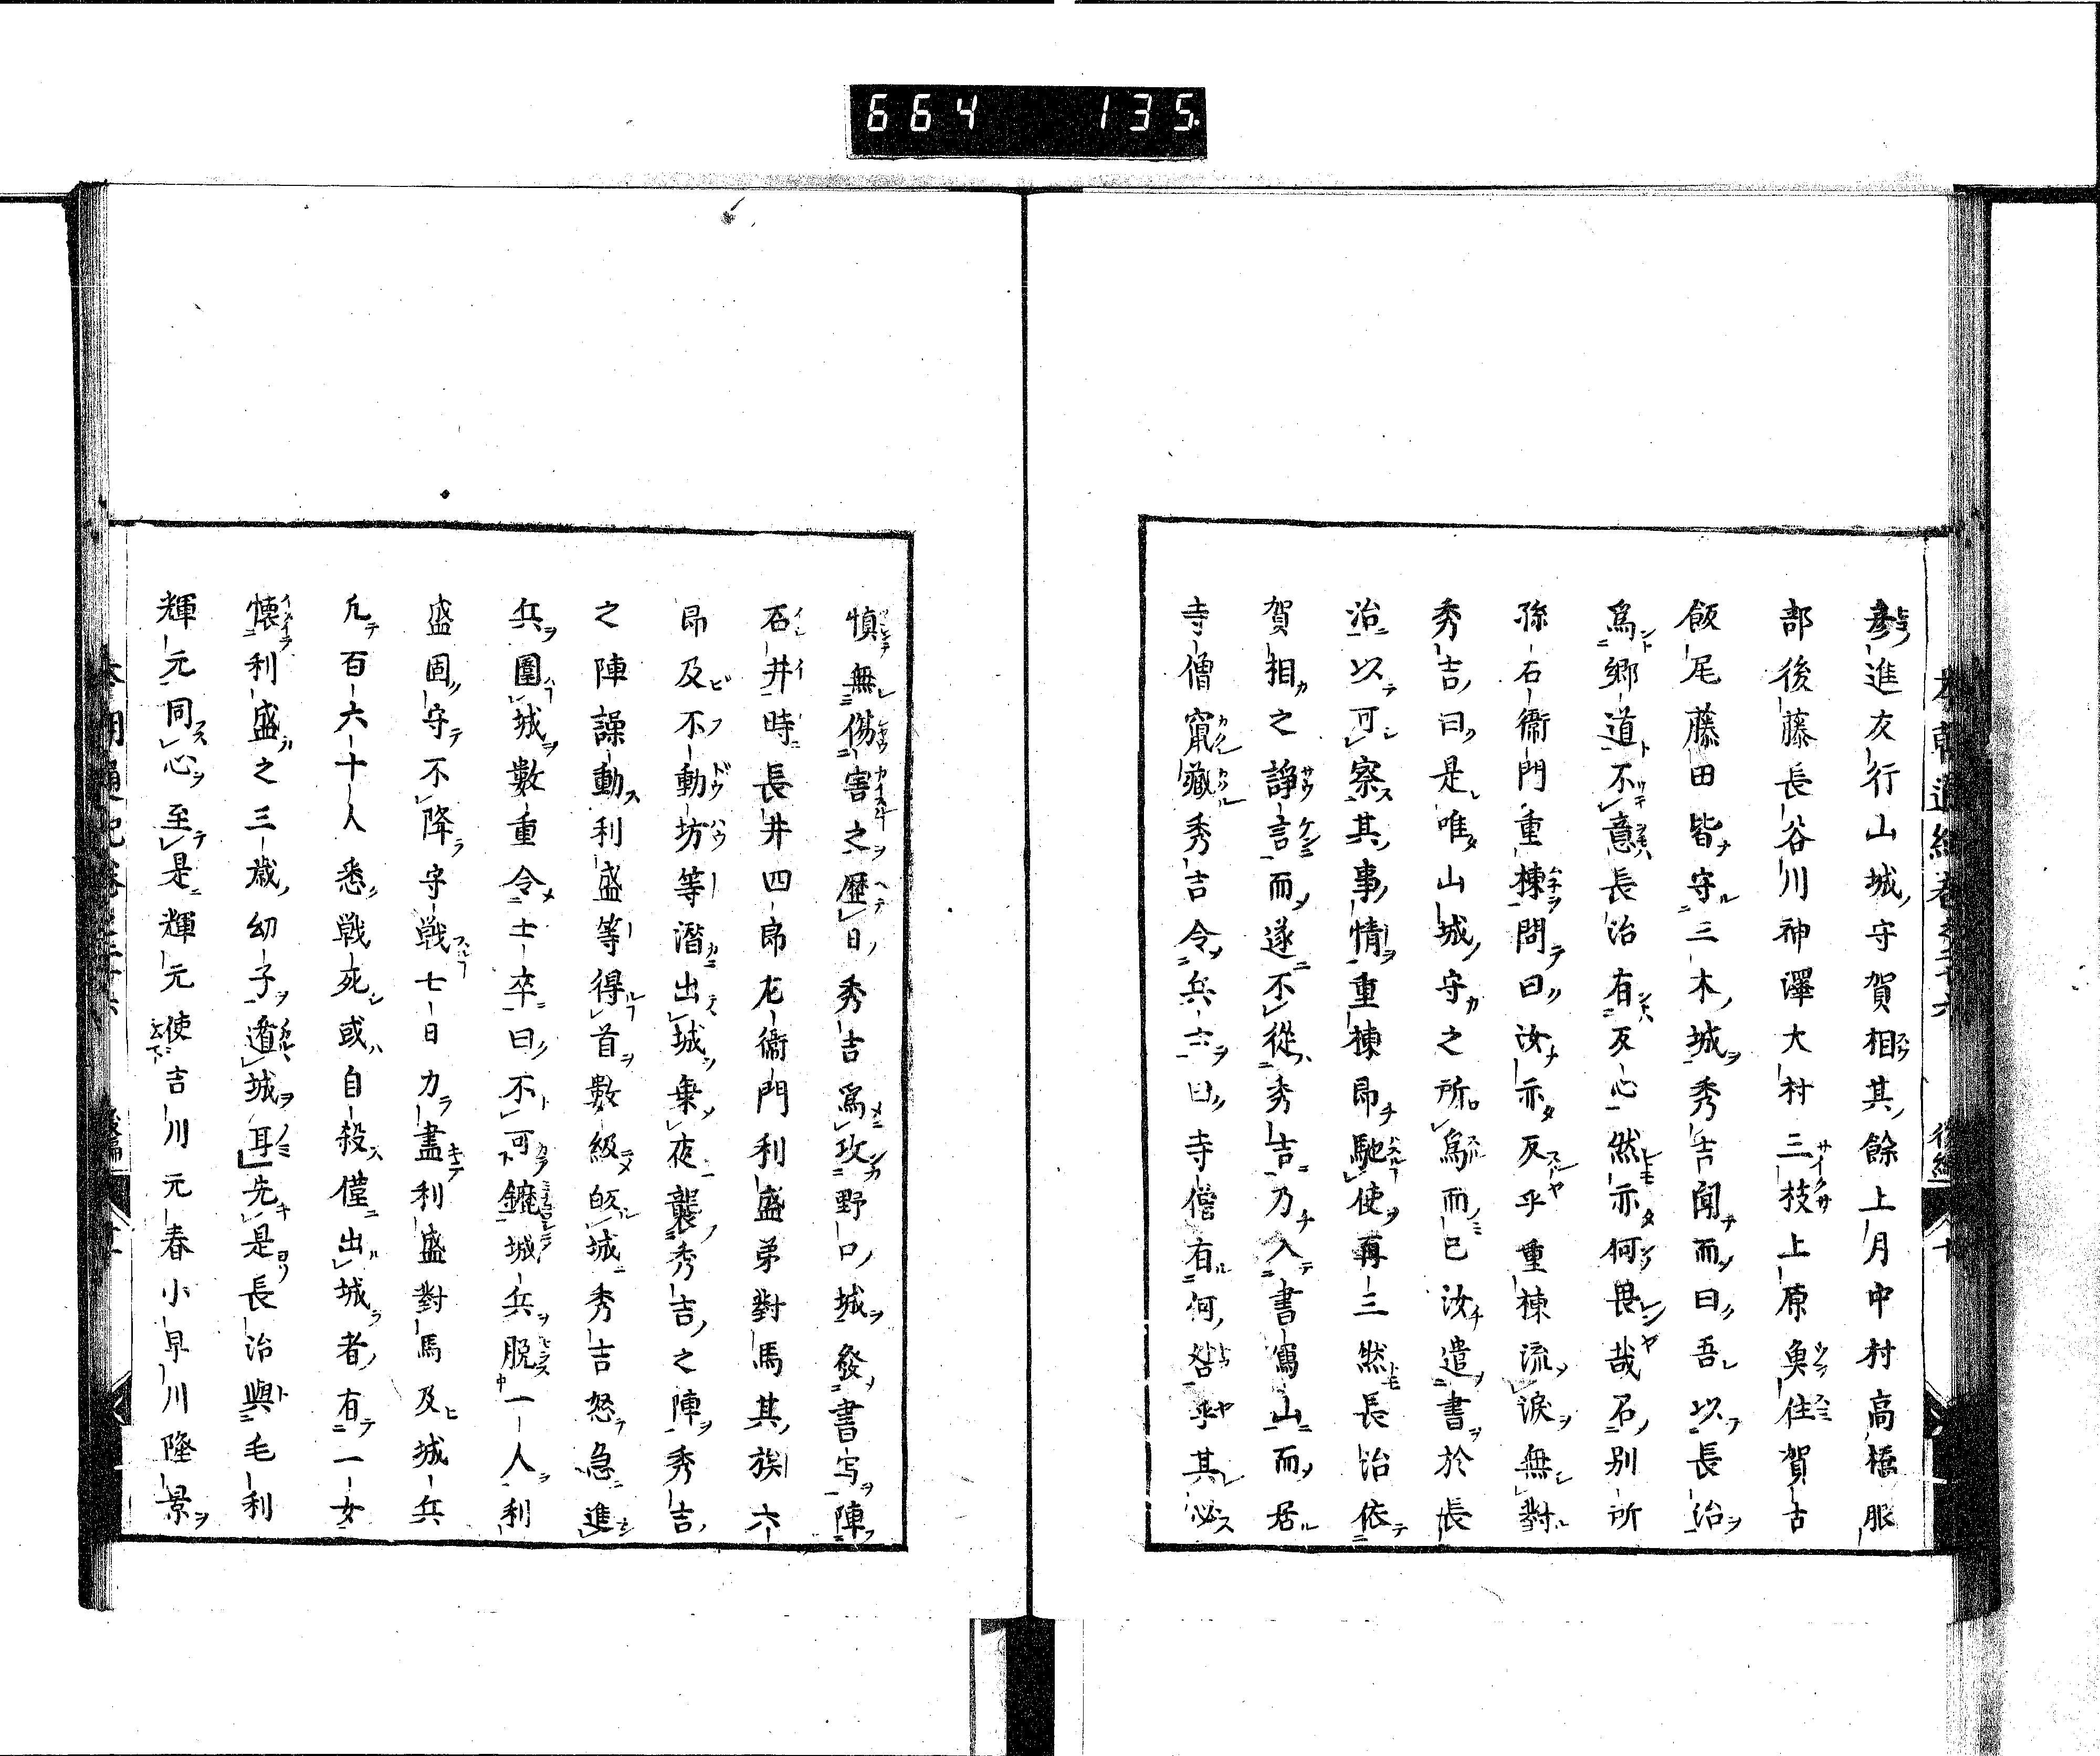 664 135
彦進友行山城守賀相其餘上月中村高橋服
部後藤長谷川神澤大村三枝上原奥住賀古
飯尾藤田皆守三木城秀吉聞而曰吾以長治
爲郷道不意長治有反心然亦何畏哉召別所
孫右衞門重棟問曰汝亦反乎重棟流涙無對
秀吉曰是唯山城守之所爲而已汝遣書於長
治以可察其事情重棟即馳使再三然長治依
賀相之諍言而遂不從秀吉乃入書寫山而居
寺僧竄藏秀吉令兵士曰寺僧有何咎乎其必
慎無傷害之歴日秀吉爲攻野口城發書写陣
石井時長井四郎左衞門利盛弟對馬其族六
郎及不動坊等潛出城乗夜襲秀吉之陣秀吉
之陣譟動利盛等得首數級皈城秀吉怒急進
兵圍城數重令士卒曰不可鏖城兵脱一人利
盛固守不降守戦七日力盡利盛對馬及城兵
凢百六十人悉戦死或自殺僅出城者有一女
懐利盛之三歳幼子遁城耳先是長治與毛利
輝元同心至是輝元使吉川元春小早川隆景